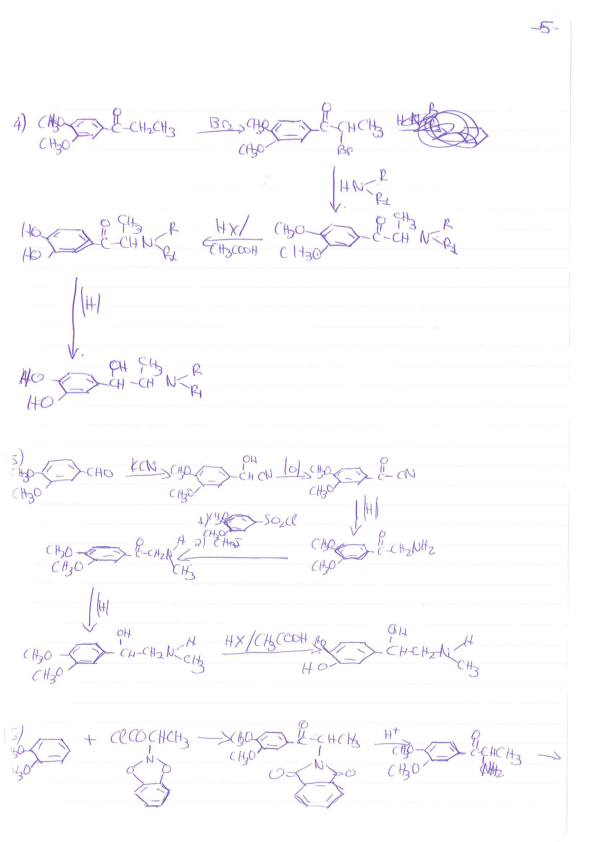 -5-
4) CH3O CH3O O C-CH2CH3 Br2 CH3O CH3O O C CHCH3 Br
HN R R1
HO HO O C CH CH3 N R R1 HX/ CH3COOH CH3O CH3O O C CH CH3 N R R1
|H|
HO HO OH CH CH3 CH N R R1
5) CH3O CH3O CHO KCN CH3O CH3O OH CHCN |O| CH3O CH3O O C-CN
|H|
1) SO2Cl
2) CH3J
CH3O CH3O O C-CH2N H CH3 CH3O CH3O O C-CH2NH2
|H|
CH3O CH3O OH CH-CH2N H CH3 HX/CH3COOH HO HO OH CH-CH2N H CH3
CH3O CH3O + ClCOCHCH3 N O O CH3O CH3O O C-CHCH3 N O O H+ CH3O CH3O O CCHCH3 NH2